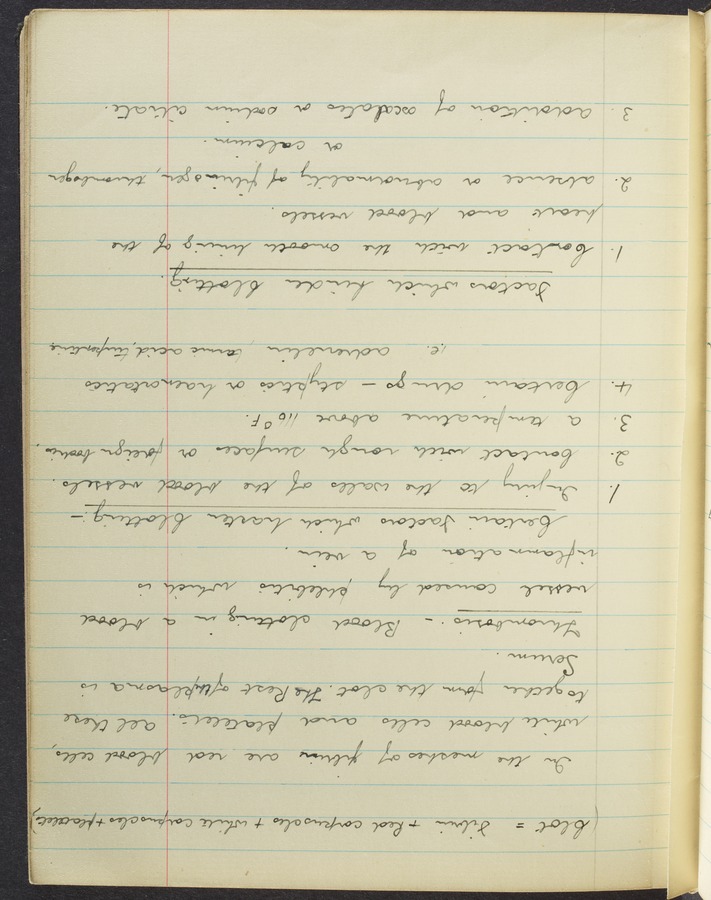 (Clot = Fibrin + Red corpuscles + white corpuscles + platelets)
In the meshes of fibrin are red blood cells,
white blood cells and platelets. All these
together form the clot. The Rest of the plasma is
Serum.
Thrombosis - Blood clotting in a blood
vessel caused by phlebitis which is
inflammation of a vein.
Certain Factors which hasten Clotting :-
1. Injury to the walls of the blood vessels.
2. Contact with rough surfaces or foreign bodies.
3. a temperature above 110°F.
4. Certain drugs - styptics or haemostatics
i.e. adrenelin, tannic acid, turpentine
Factors which hinder Clotting.
1. Contact with the smooth lining of the
heart and blood vessels.
2. absence or abnormality of fibrinogen, thrombogen
or calcium.
3. addition of oxalates or sodium citrate.